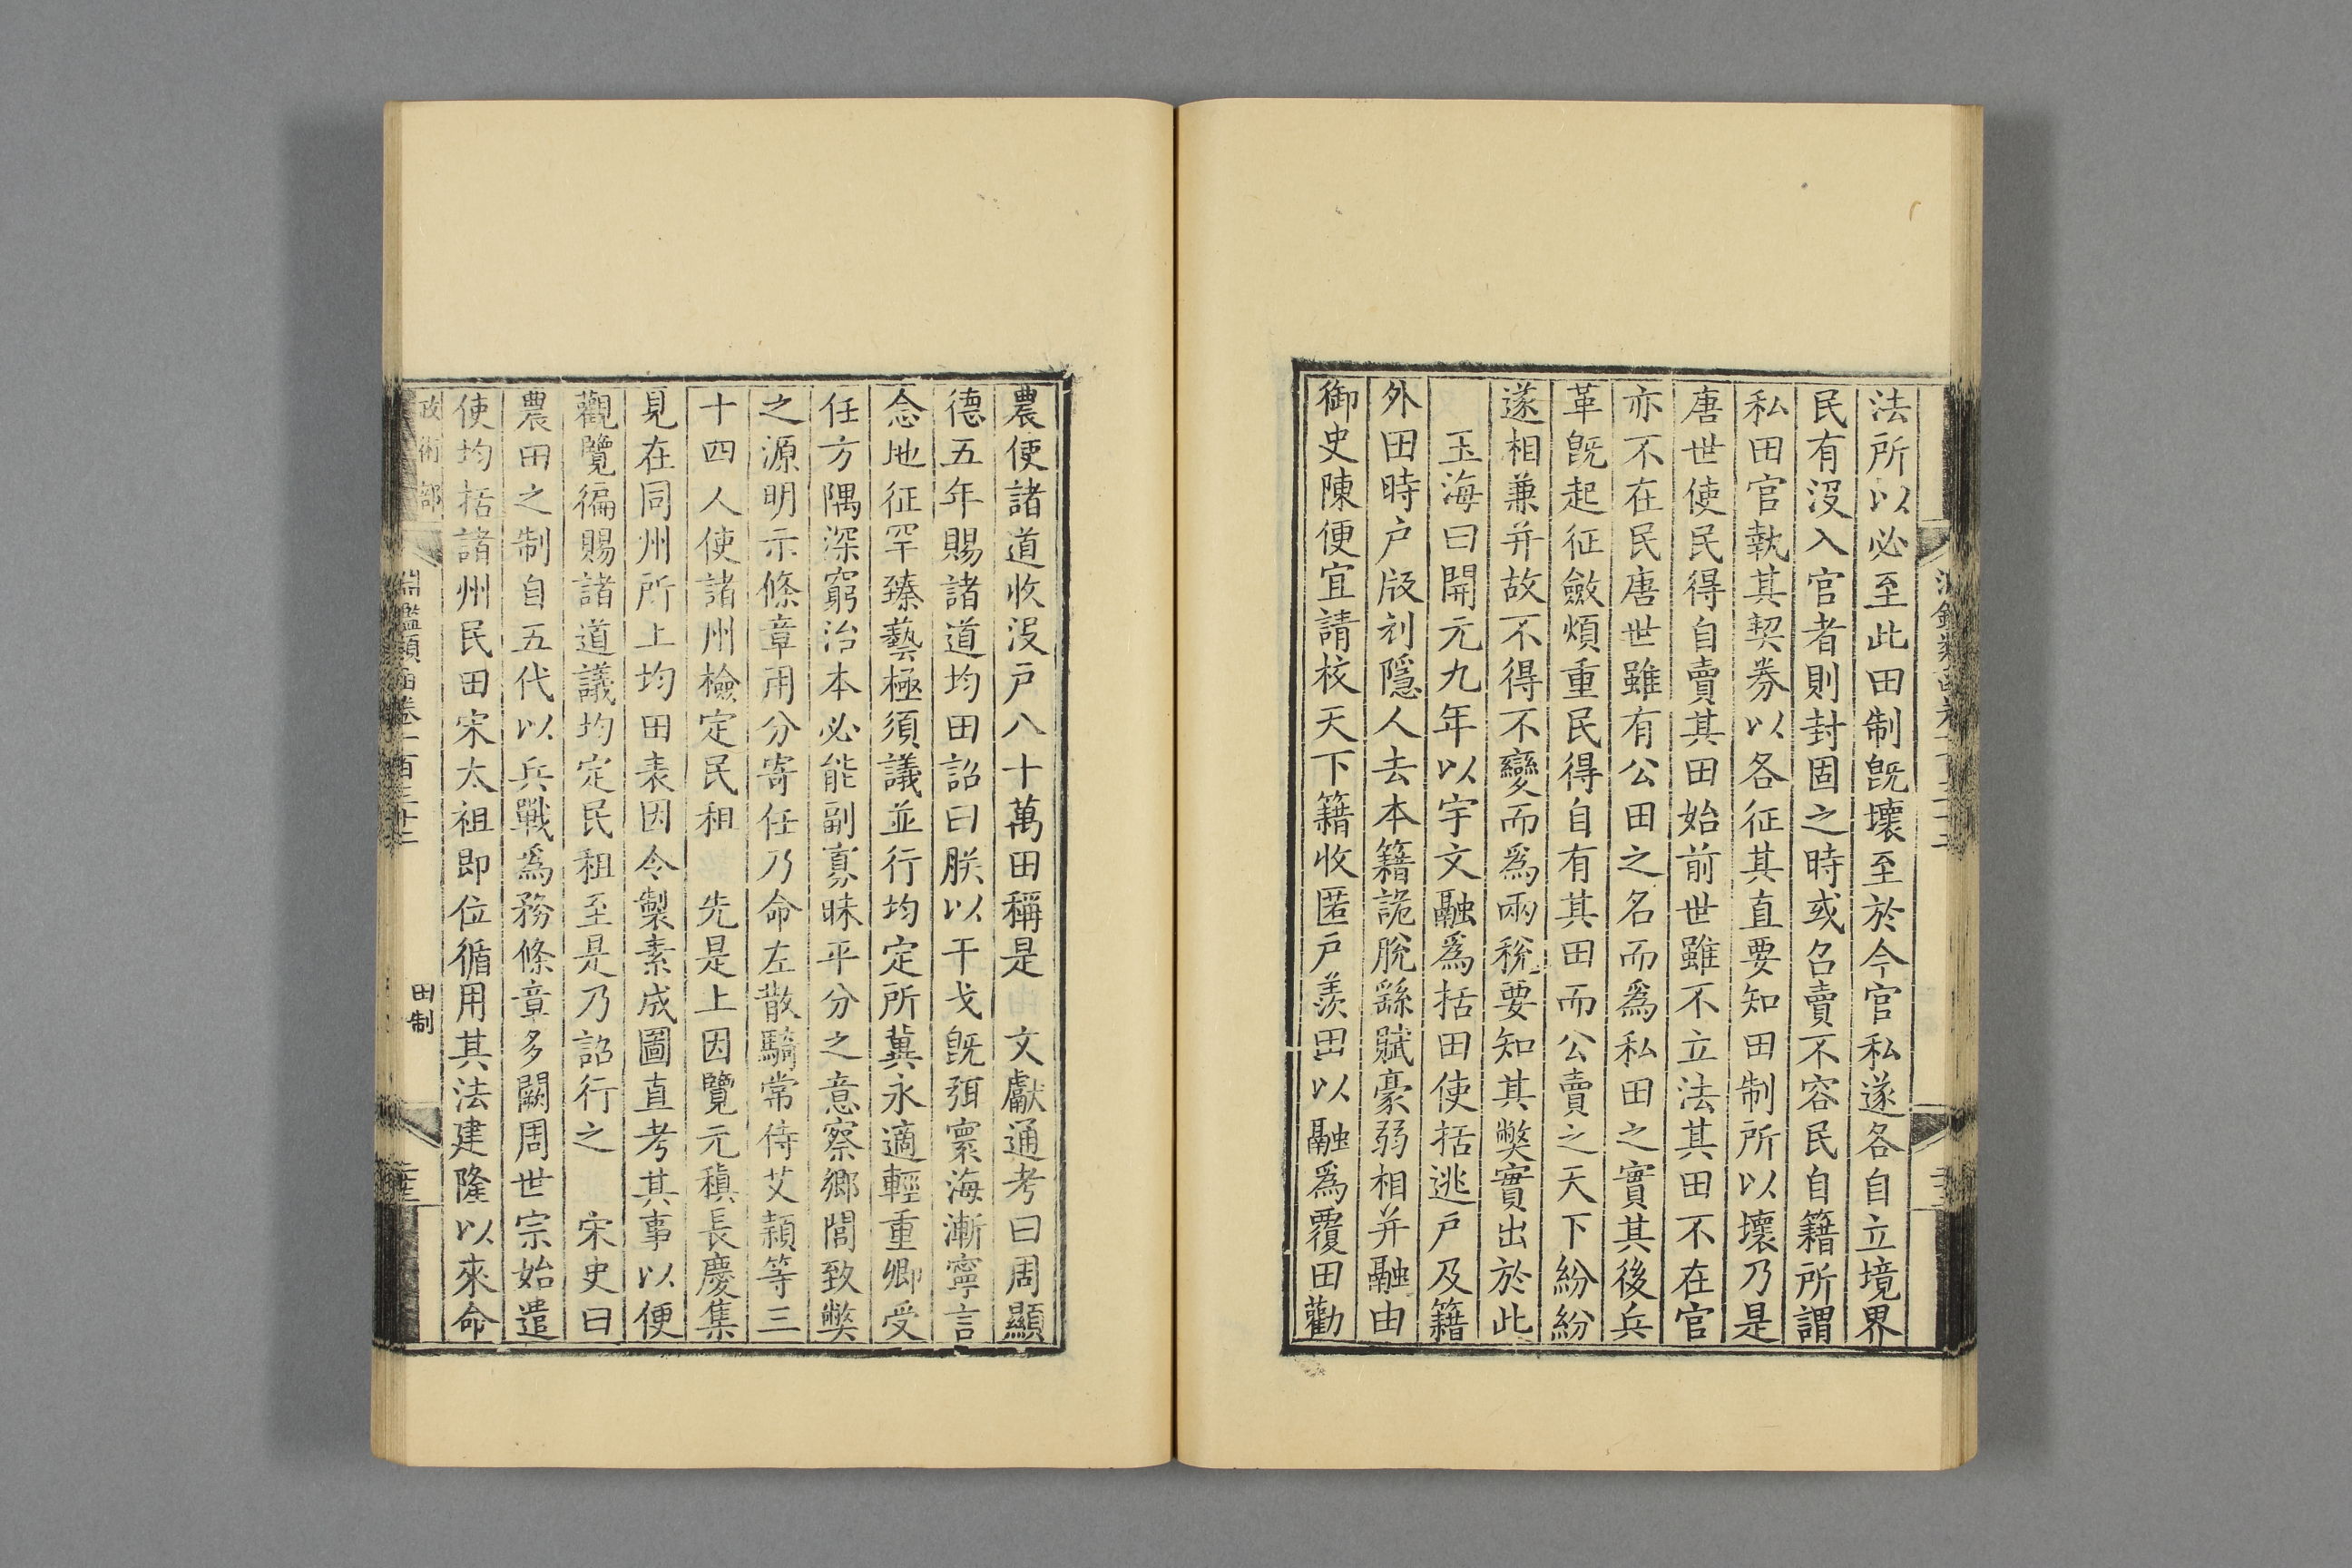 法所以必至此田制旣壞至於今官私遂各自立境界
民有沒入官者則封固之時或召賣不容民自籍所謂
私田官執其契券以各征其直要知田制所以壞乃是
唐世使民得自賣其田始前世雖不立法其田不在官
亦不在民唐世雖有公田之名而爲私田之實其後兵
革旣起征斂煩重民得自有其田而公賣之天下紛紛
遂相兼并故不得不變而爲兩稅要知其弊實出於此
玉海曰開元九年以宇文融爲括田使括逃戸及籍
外田時戸版刓隱人去本籍詭脫繇賦豪弱相并融由
御史陳便宜請核天下籍收匿戸羨田以融爲覆田勸
農使諸道收沒戸八十萬田稱是 文獻通考曰周顯
德五年賜諸道均田詔曰朕以干戈旣弭寰海漸寧言
念地征罕臻藝極須議並行均定所冀永適輕重卿受
任方隅深窮治本必能副寡昧平分之意察鄉閭致弊
之源明示條章用分寄任乃命左散騎常侍艾穎等三
十四人使諸州檢定民租 先是上因覽元稹長慶集
見在同州所上均田表因令製素成圖直考其事以便
觀覽徧賜諸道議均定民租至是乃詔行之 宋史曰
農田之制自五代以兵戰爲務條章多闕周世宗始遣
使均括諸州民田宋太祖即位循用其法建隆以來命
政術部 淵鑑類函卷一百三十二 田制